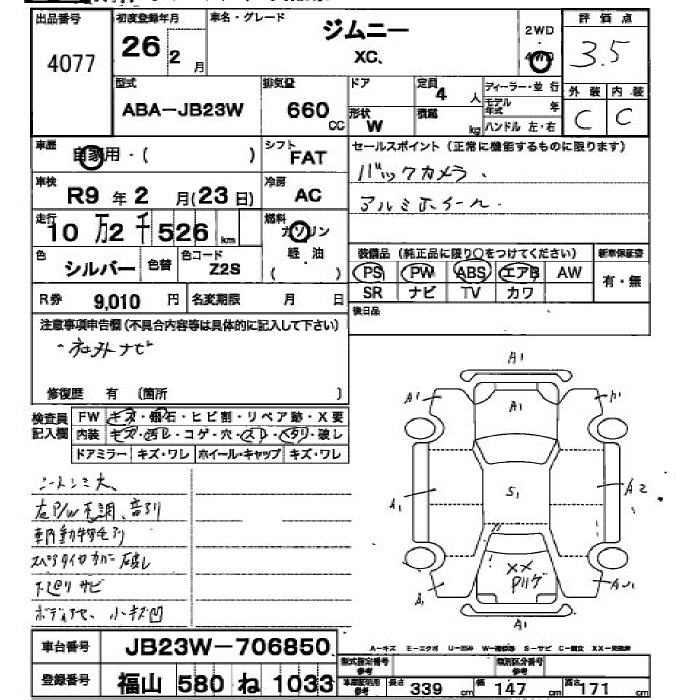 出品番号 初度登録年月 車名・グレード 評価点
4077 26年2月 ジムニー 2WD 3.5
XC、 4WD
型式 排気量 ドア 定員 ディーラー・並行 外装 内装
ABA-JB23W 660CC 4人 モデル年式 年 C C
形状 W 積載 kg ハンドル 左・右
車歴 自家用・( ) シフト FAT セールスポイント(正常に機能するものに限ります)
車検 R9年2月(23日) 冷房 AC バックカメラ、
走行 10万2千526km 燃料 ガソリン アルミホイール、
軽・油
( )
色 シルバー 色替 色コード Z2S 装備品(純正品に限り○をつけてください) 新車保証書
PS PW ABS エアB AW 有・無
R券 9,010円 名変期限 月 日 SR ナビ TV カワ
注意事項申告欄(不具合内容等は具体的に記入して下さい) 後日品
社外ナビ
修復歴 有 〔箇所 〕
検査員記入欄 FW キズ・飛石・ヒビ割・リペア跡・X要
内装 キズ・汚レ・コゲ・穴・スレ・ヘタリ・破レ
ドアミラー キズ・ワレ ホイール・キャップ キズ・ワレ
シートシミ大、
右P/W不調、音有リ
車内動物毛有リ
スペアタイヤカバー破レ
下廻リサビ
ボディアセ、小キズ凹
A1
A1 A1 A1
A1 S1 A2
XX
A1
A1
車台番号 JB23W-706850
A-キズ E-エクボ U-凹み W-補修跡 S-サビ C-腐食 XX-交換済
登録番号 福山 580 ね 1033
型式指定番号 参考 類別区分番号 参考
車庫証明用 参考 長さ 339cm 幅 147cm 高さ 171cm